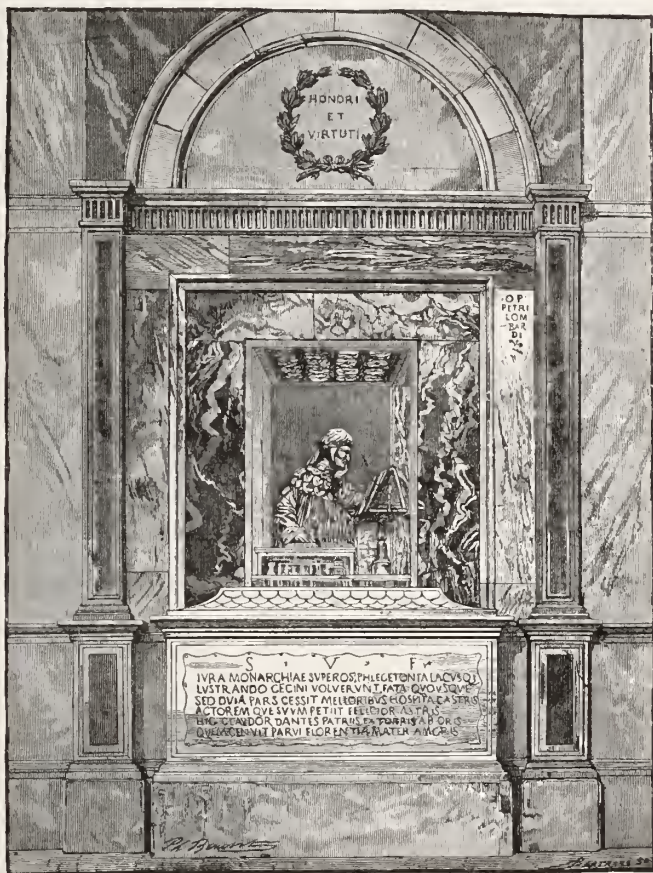 HONORI
ET
VIRTUTI
·OP·
PETRI
LOM
BAR
DI
S · V · F
IVRA MONARCHIAE SVPEROS, PHLEGETONTA LACVSQ;
LVSTRANDO CECINI VOLVERVNT FATA QVOVSQVE
SED DVIA PARS CESSIT MELIORIBVS HOSPITA CASTRIS
ACTOREM QVE SVVM PETIIT FELICIOR ASTRIS
HIC CLAVDOR DANTES PATRIIS EXTORRIS AB ORIS
QVEM GENVIT PARVI FLORENTIÆ MATER AMORIS
Ph Benoist